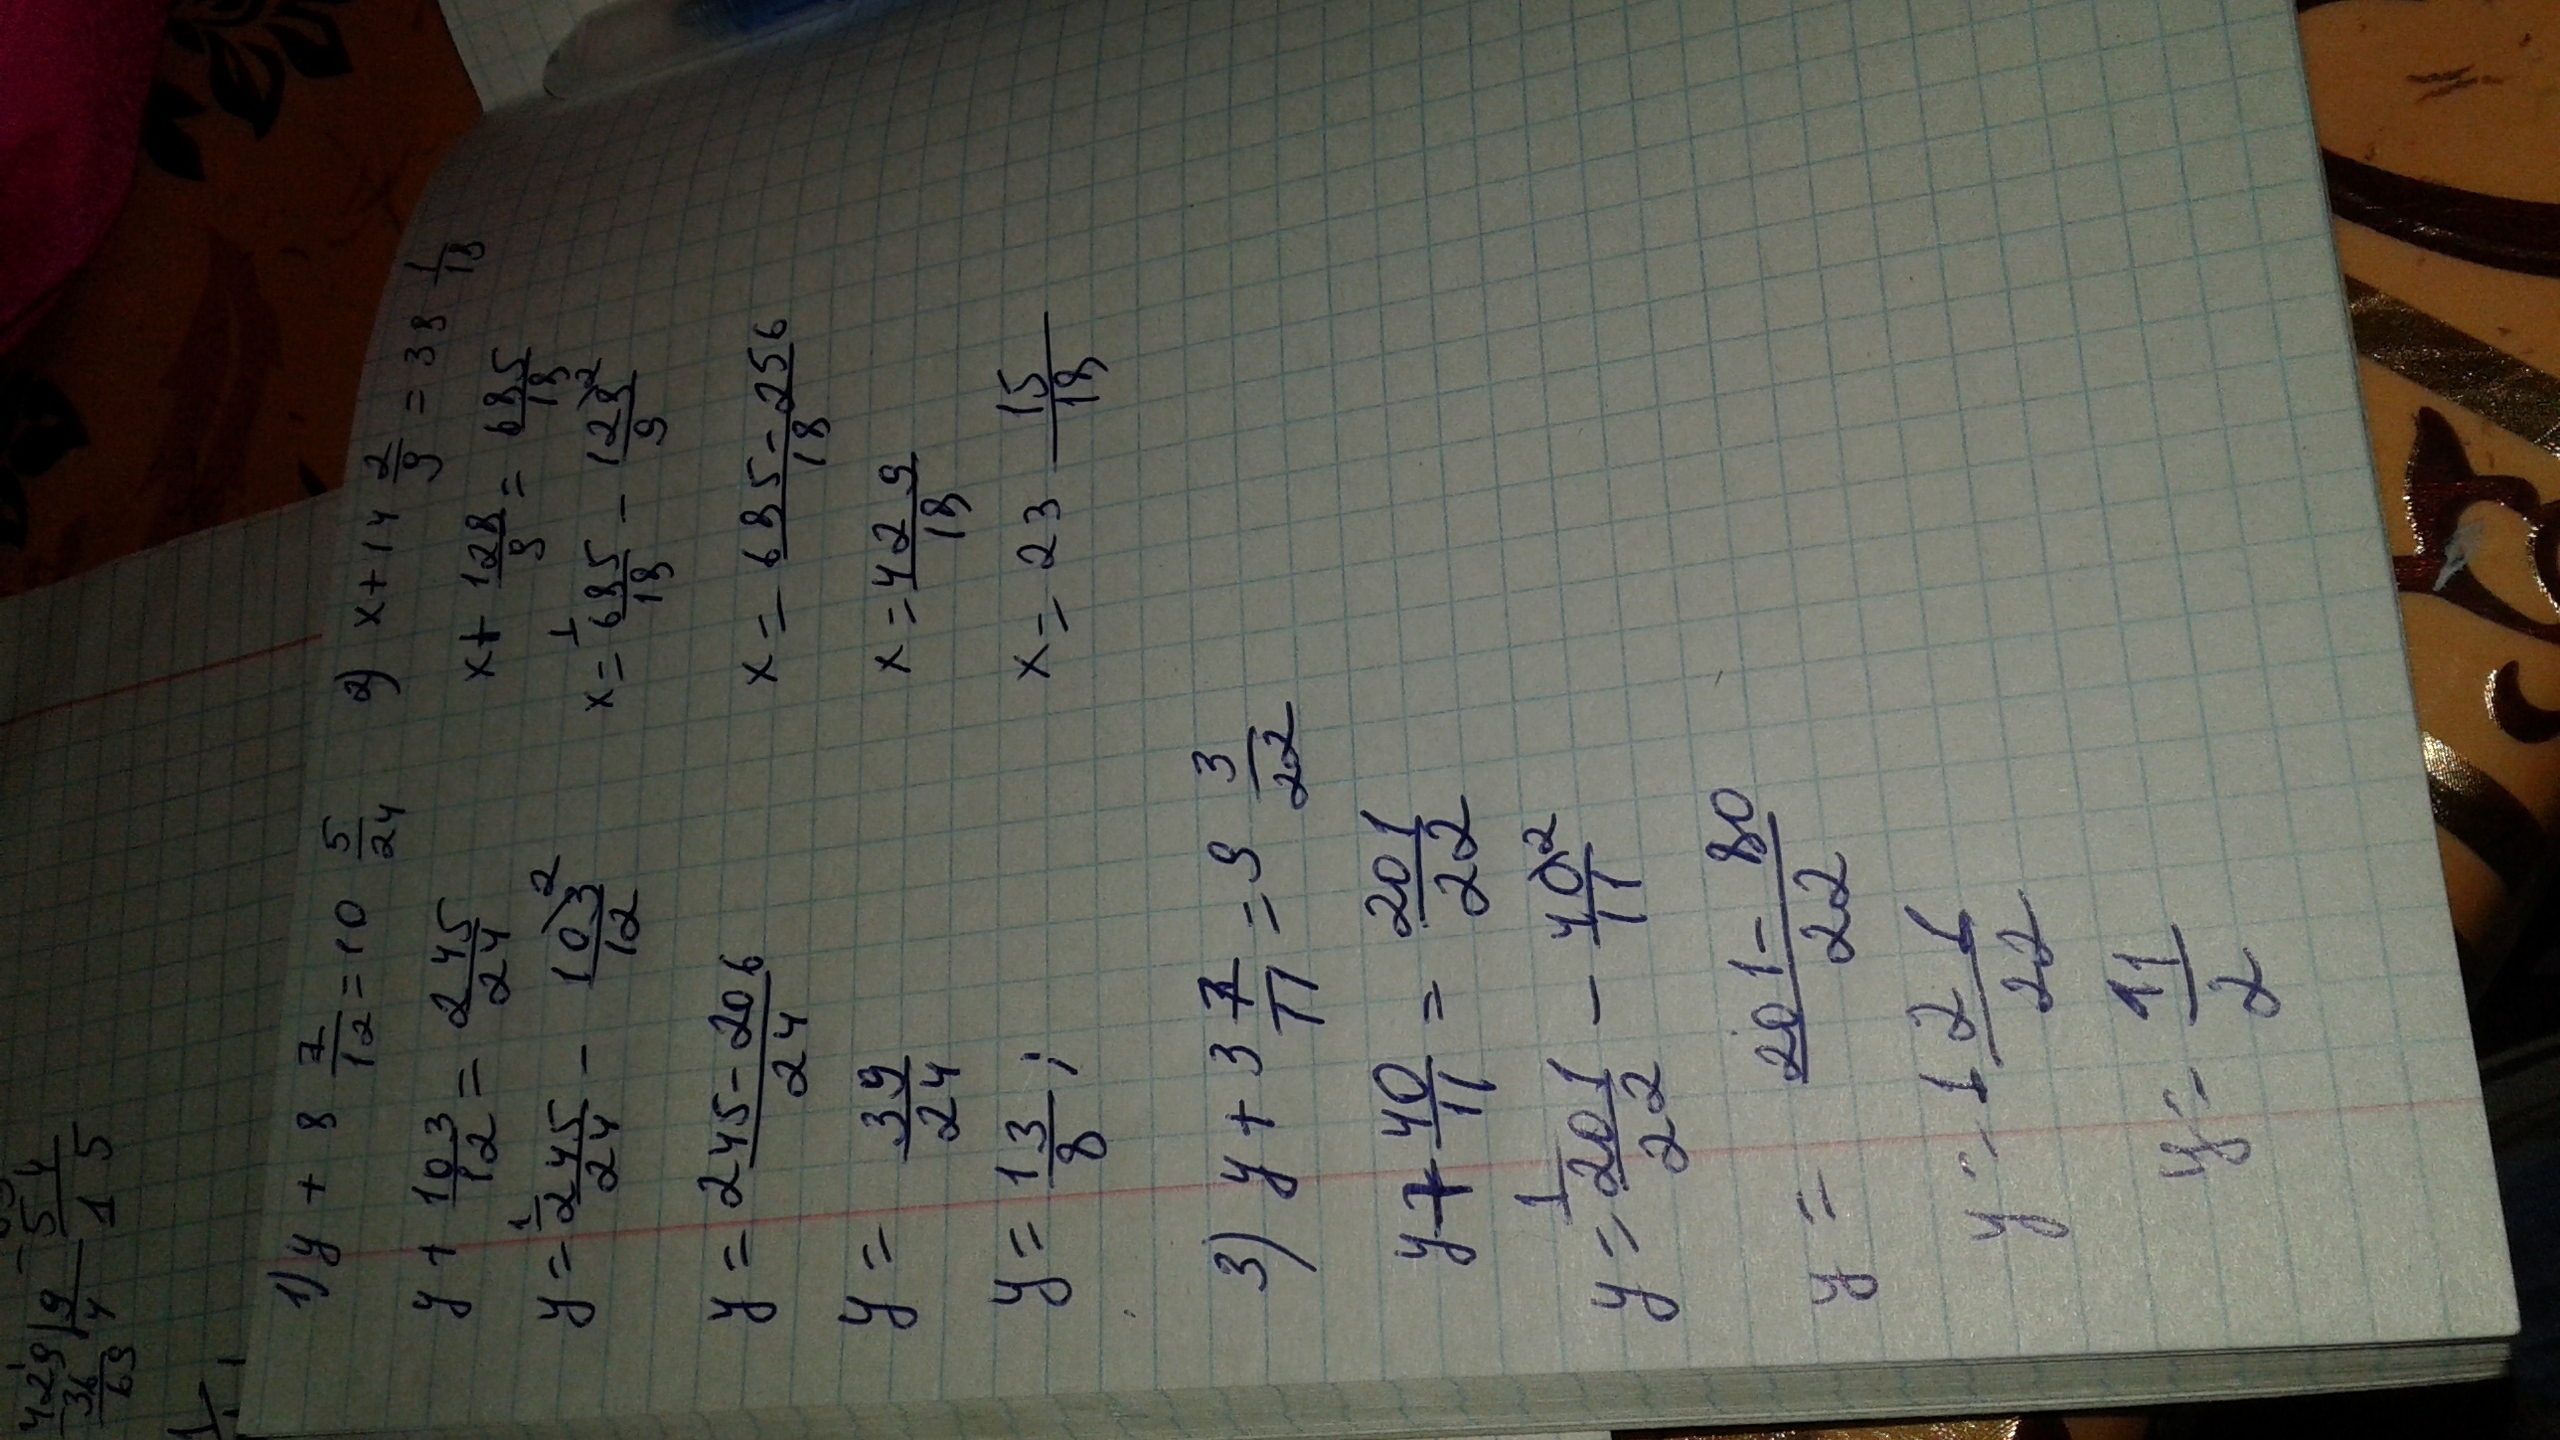 429 | 9 54
36 4 15
69
1) y + 8 7/12 = 10 5/24
y + 103/12 = 245/24
y = 245/24 ¹ - 103/12 ²
y = 245-206/24
y = 39/24
y = 13/8 ;
2) x + 14 2/9 = 38 1/18
x + 128/9 = 685/18
x = 685/18 ¹ - 128/9 ²
x = 685-256/18
x = 429/18
x = 23 15/18
3) y + 3 7/11 = 9 3/22
y + 40/11 = 201/22
y = 201/22 ¹ - 40/11 ²
y = 201-80/22
y = 121/22
y = 11/2